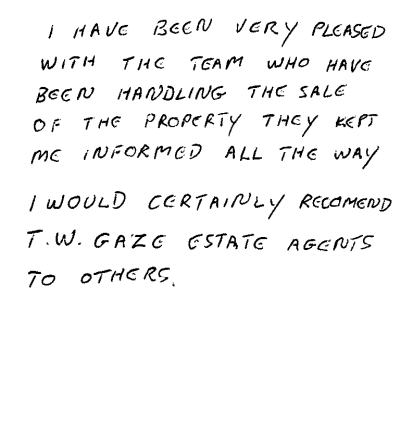 I HAVE BEEN VERY PLEASED
WITH THE TEAM WHO HAVE
BEEN HANDLING THE SALE
OF THE PROPERTY THEY KEPT
ME INFORMED ALL THE WAY
I WOULD CERTAINLY RECOMEND
T.W. GAZE ESTATE AGENTS
TO OTHERS.